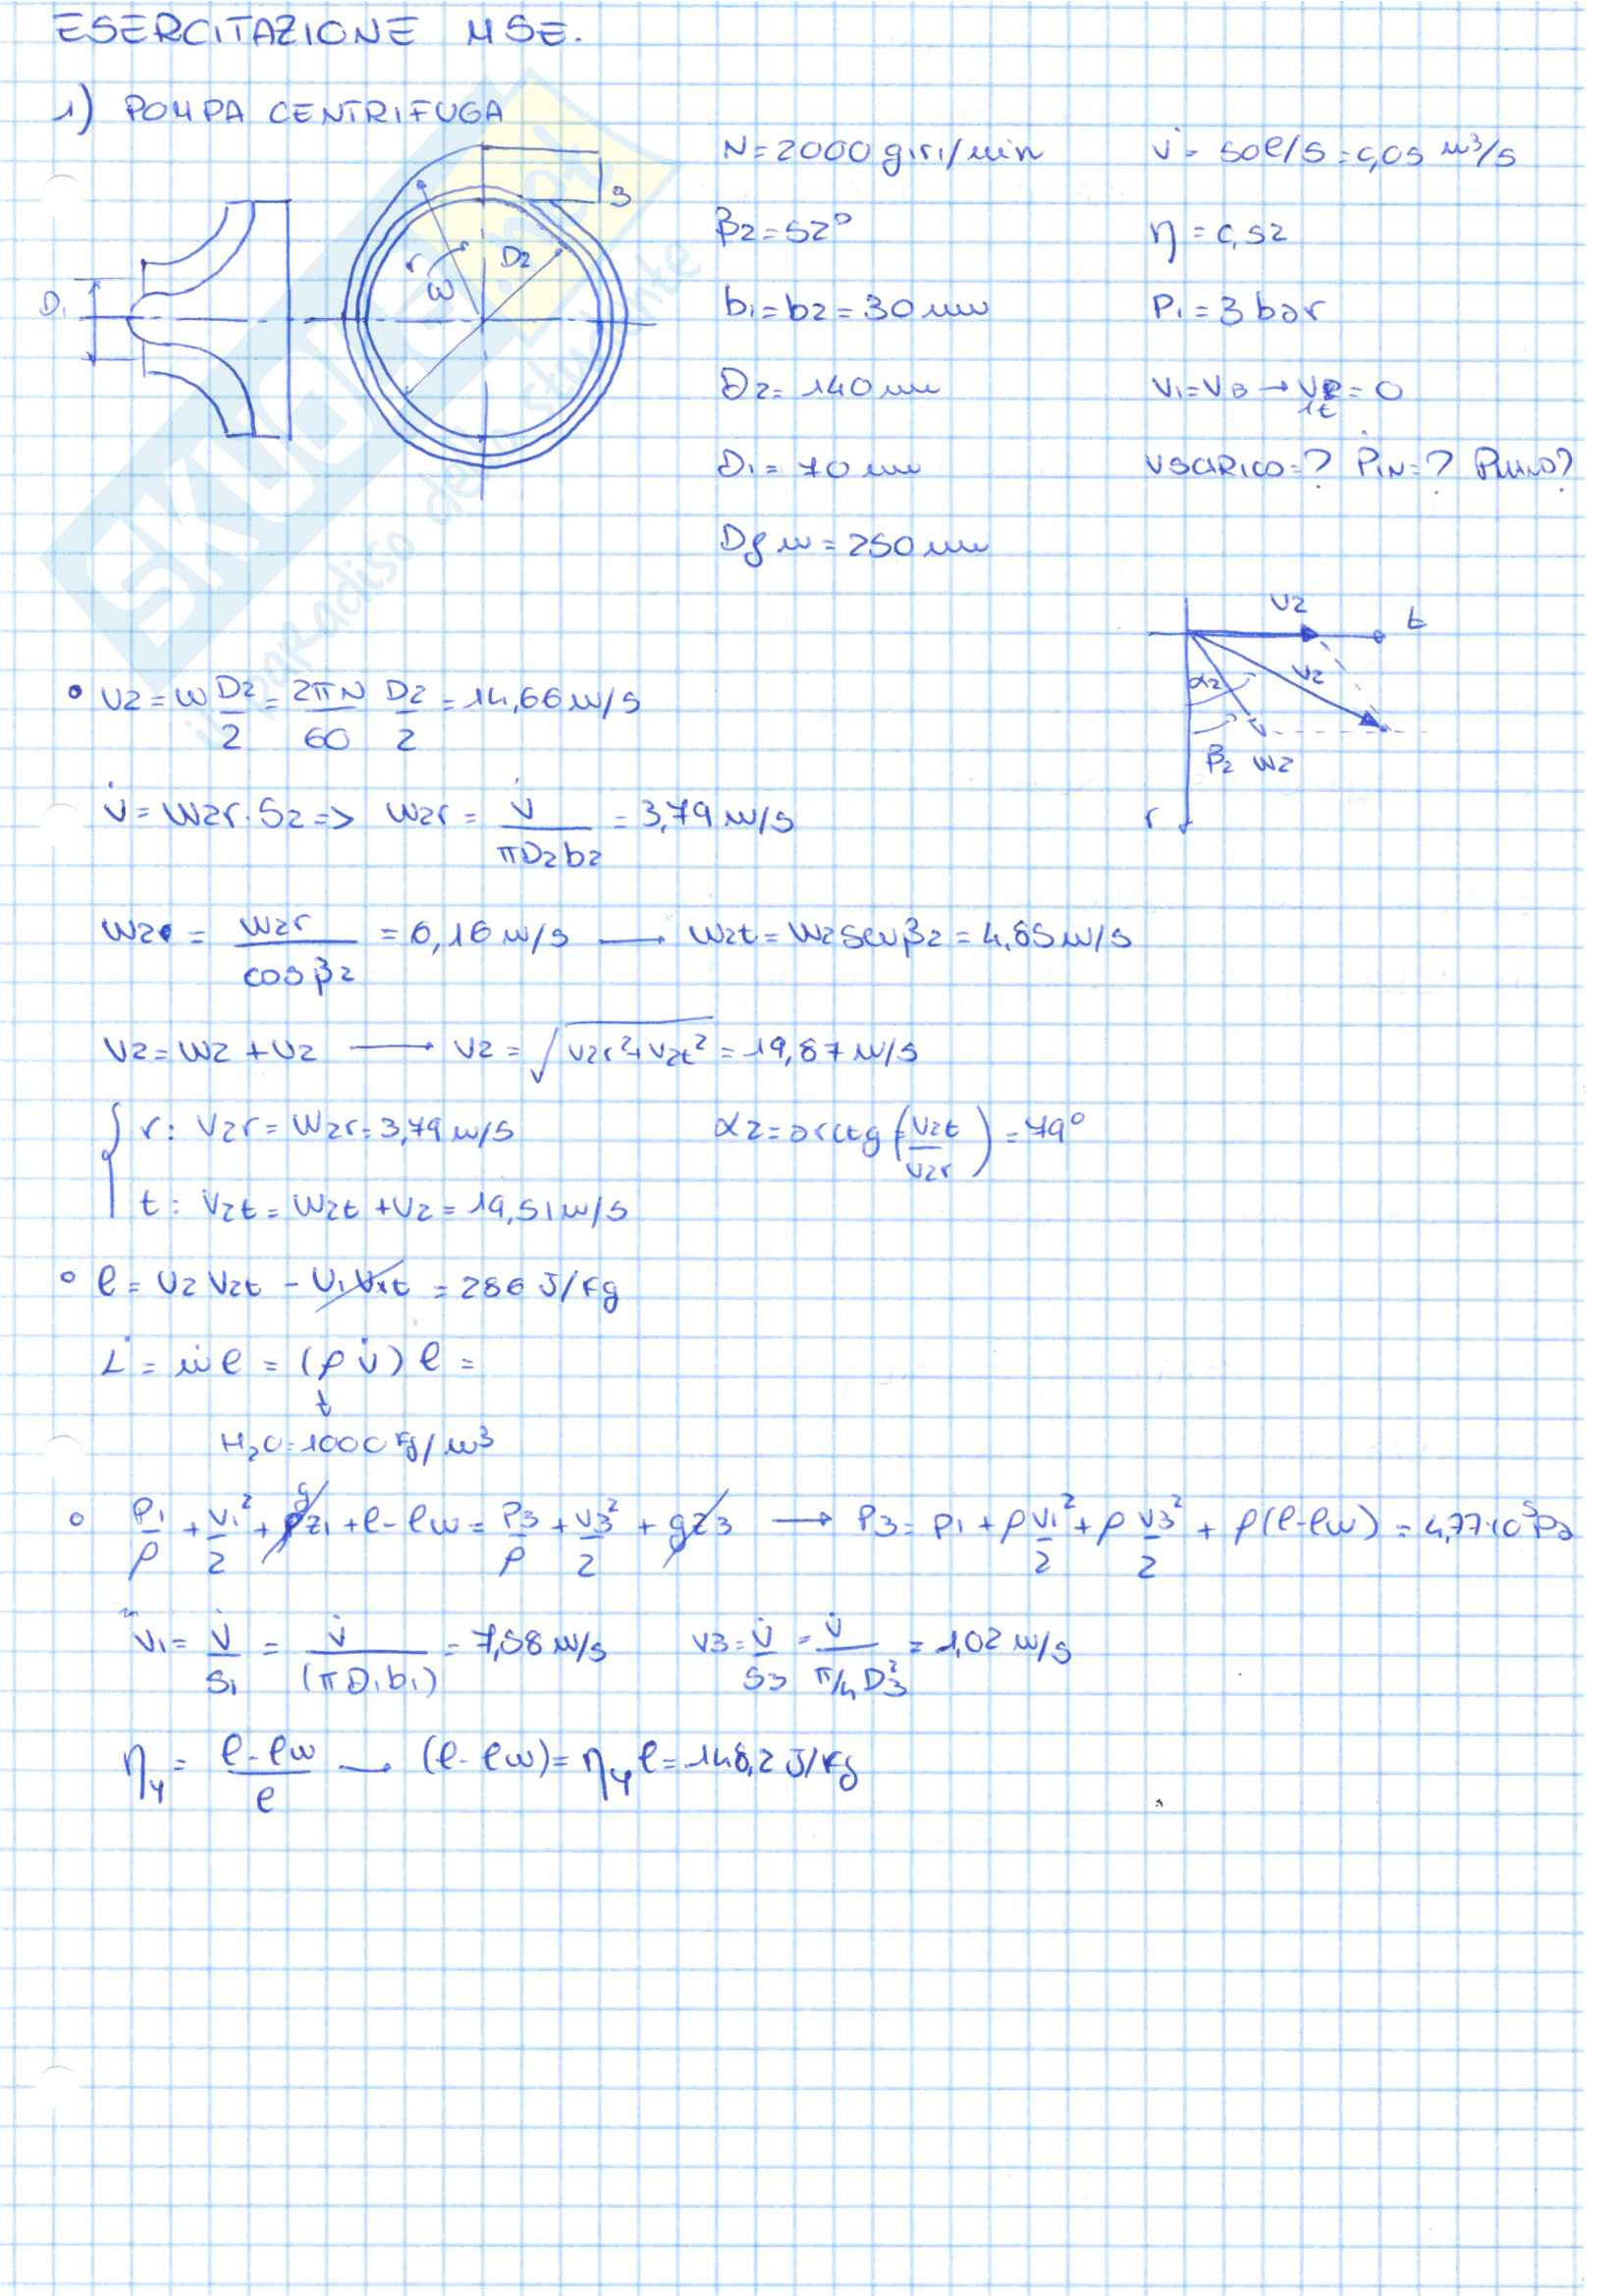 ESERCITAZIONE MSE.
1) POMPA CENTRIFUGA
D1
r
ω
D2
3
N = 2000 giri/min
β2 = 52°
b1 = b2 = 30 mm
D2 = 140 mm
D1 = 70 mm
Dfin = 250 mm
V̇ = 50 l/s = 0,05 m³/s
η = 0,52
P1 = 3 bar
V1 = VB → V1t = 0
VSCARICO = ? PIN = ?
U2 t
V2
α2
β2 W2
r
• U2 = ω D2/2 = 2πN/60 D2/2 = 14,66 m/s
V̇ = W2r · S2 => W2r = V̇/(πD2b2) = 3,79 m/s
W2 = W2r/cosβ2 = 6,16 m/s → W2t = W2 senβ2 = 4,85 m/s
V2 = W2 + U2 → V2 = √(V2r² + V2t²) = 19,87 m/s
r: V2r = W2r = 3,79 m/s α2 = arctg (V2t/V2r) = 79°
t: V2t = W2t + U2 = 19,51 m/s
• l = U2 V2t - U1 V1t = 286 J/kg
L̇ = ṁ l = (ρ V̇) l =
H2O = 1000 kg/m³
• P1/ρ + V1²/2 + gz1 + l - lw = P3/ρ + V3²/2 + gz3 → P3 = P1 + ρ V1²/2 + ρ V3²/2 + ρ(l - lw) = 4,77·10⁵ Pa
V1 = V̇/S1 = V̇/(πD1b1) = 7,58 m/s V3 = V̇/S3 = V̇/(π/4 D3²) = 1,02 m/s
ηy = (l - lw)/l → (l - lw) = ηy l = 148,2 J/kg
SKUOLA.net
il paradiso dello studente